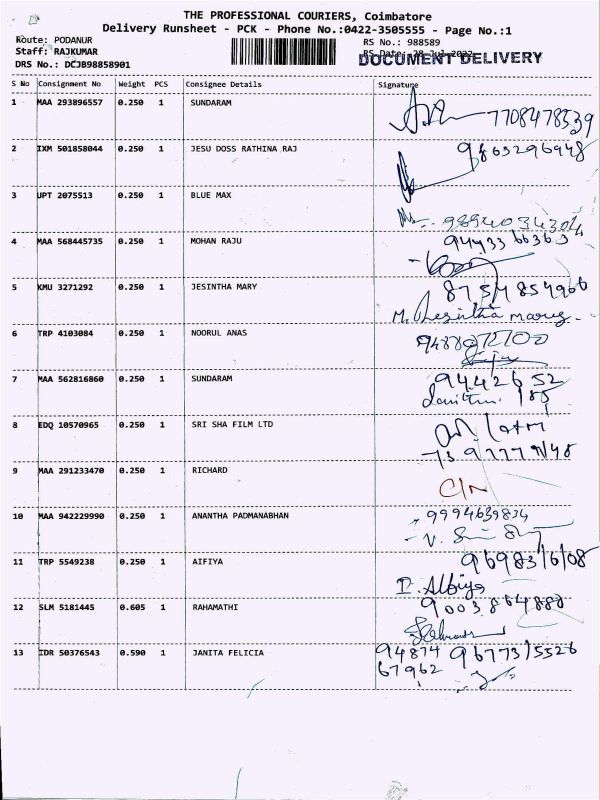 THE PROFESSIONAL COURIERS, Coimbatore
Delivery Runsheet - PCK - Phone No.:0422-3505555 - Page No.:1
Route: PODANUR
RS No.: 988589
Staff: RAJKUMAR
RS Date: 28 Jul 2022
DOCUMENT DELIVERY
DRS No.: DCJB98858901
S No Consignment No Weight PCS Consignee Details Signature
1 MAA 293896557 0.250 1 SUNDARAM 7708478539
2 IXM 501858044 0.250 1 JESU DOSS RATHINA RAJ 9863296948
3 UPT 2075513 0.250 1 BLUE MAX
4 MAA 568445735 0.250 1 MOHAN RAJU
5 KMU 3271292 0.250 1 JESINTHA MARY 8754854966
M. Jesintha mary
6 TRP 4103084 0.250 1 NOORUL ANAS
7 MAA 562816860 0.250 1 SUNDARAM 9442652
185
8 EDQ 10570965 0.250 1 SRI SHA FILM LTD
9 MAA 291233470 0.250 1 RICHARD
10 MAA 942229990 0.250 1 ANANTHA PADMANABHAN 9994639834
11 TRP 5549238 0.250 1 AIFIYA
12 SLM 5181445 0.605 1 RAHAMATHI
13 IDR 50376543 0.590 1 JANITA FELICIA 94874 9677315526
67962